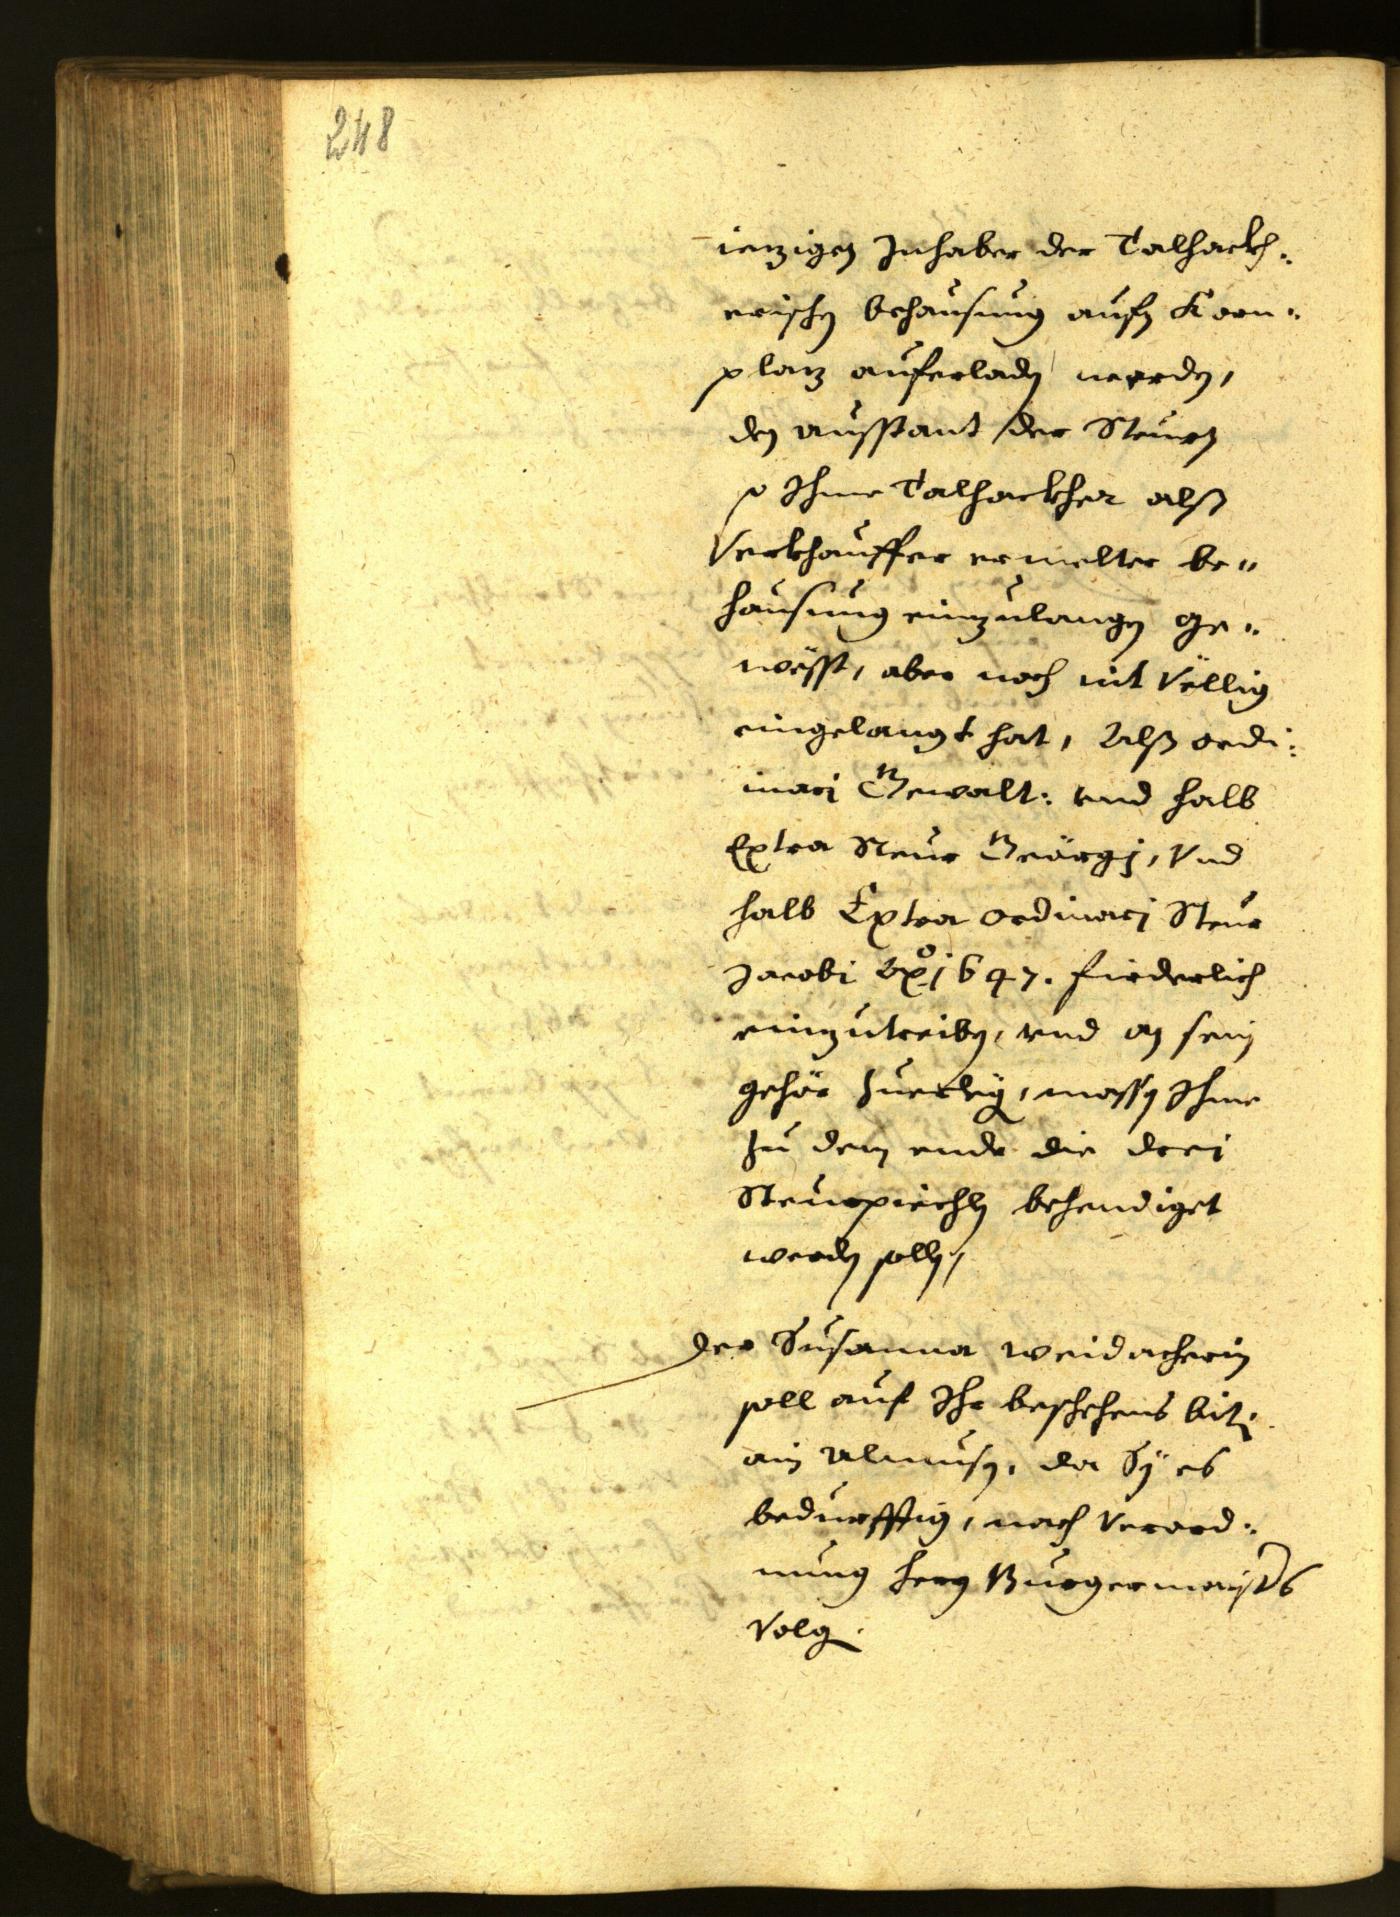 248
iezigen Inhaber der Talhackh„
erischen behausung aufn Korn„
plaz auferladen worden,
den ausstant der Steurn
so Ihme Talhackher alß
Verkhauffer ermelter be„
hausung einzulangen ge„
wösst, aber noch nit Völlig
eingelangt hat, Alß ordi„
nari Gewalt: und halb
Extra Steur Geörgj, Vnd
halb Extra ordinari Steur
Jacobi Ao 1647. firderlich
einzutreiben, vnd an sein
gehör zuerleg, massen Ihme
zu dem ende die drei
Steurpiechln behendiget
werden sollen,
der Susanna Weidacherin
soll auf Ihr beschehens bit:
ain Almusen, da Sÿ es
bedurfftig, nach Verord„
nung hern Burgermaisters
Volgen.